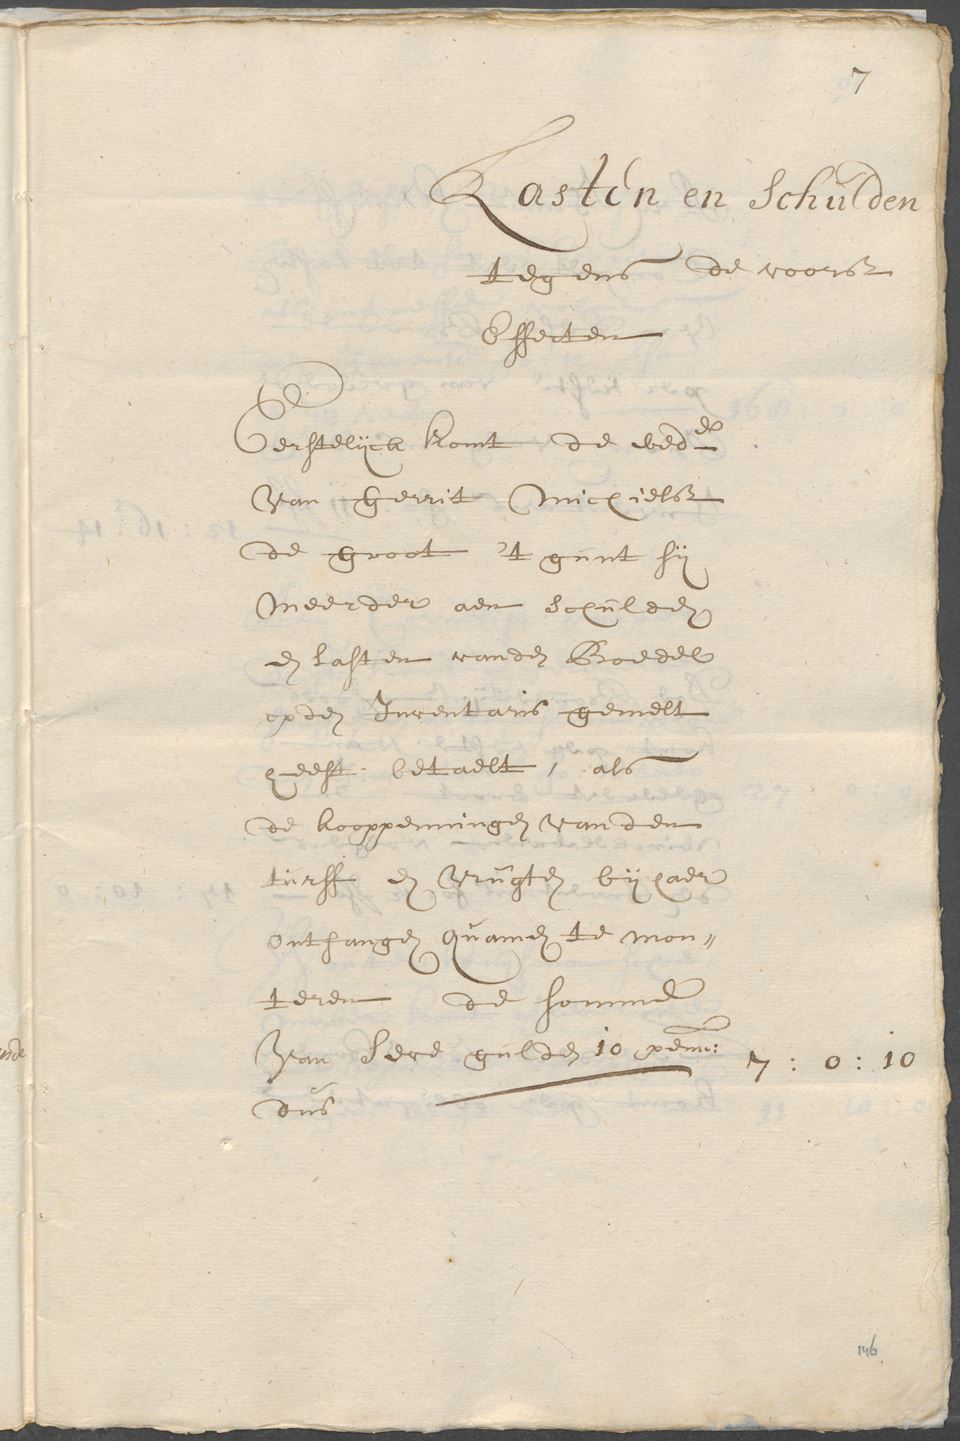 7
Lasten en Schulden
tegens de voorsz
Effecten
Eerstelijck komt de wed:de
van Gerrit Michielsz
de Groot 't gunt sij
meerder aen schulden
en lasten vanden Boedel
opden Inventaris gemelt
heeft betaelt, als
de kooppenningen van den
turff en vrugten bij haer
onthangen quamen te mon„
teren de somme
van seve gulden 10 penn:
dus
7 : 0 : 10
146